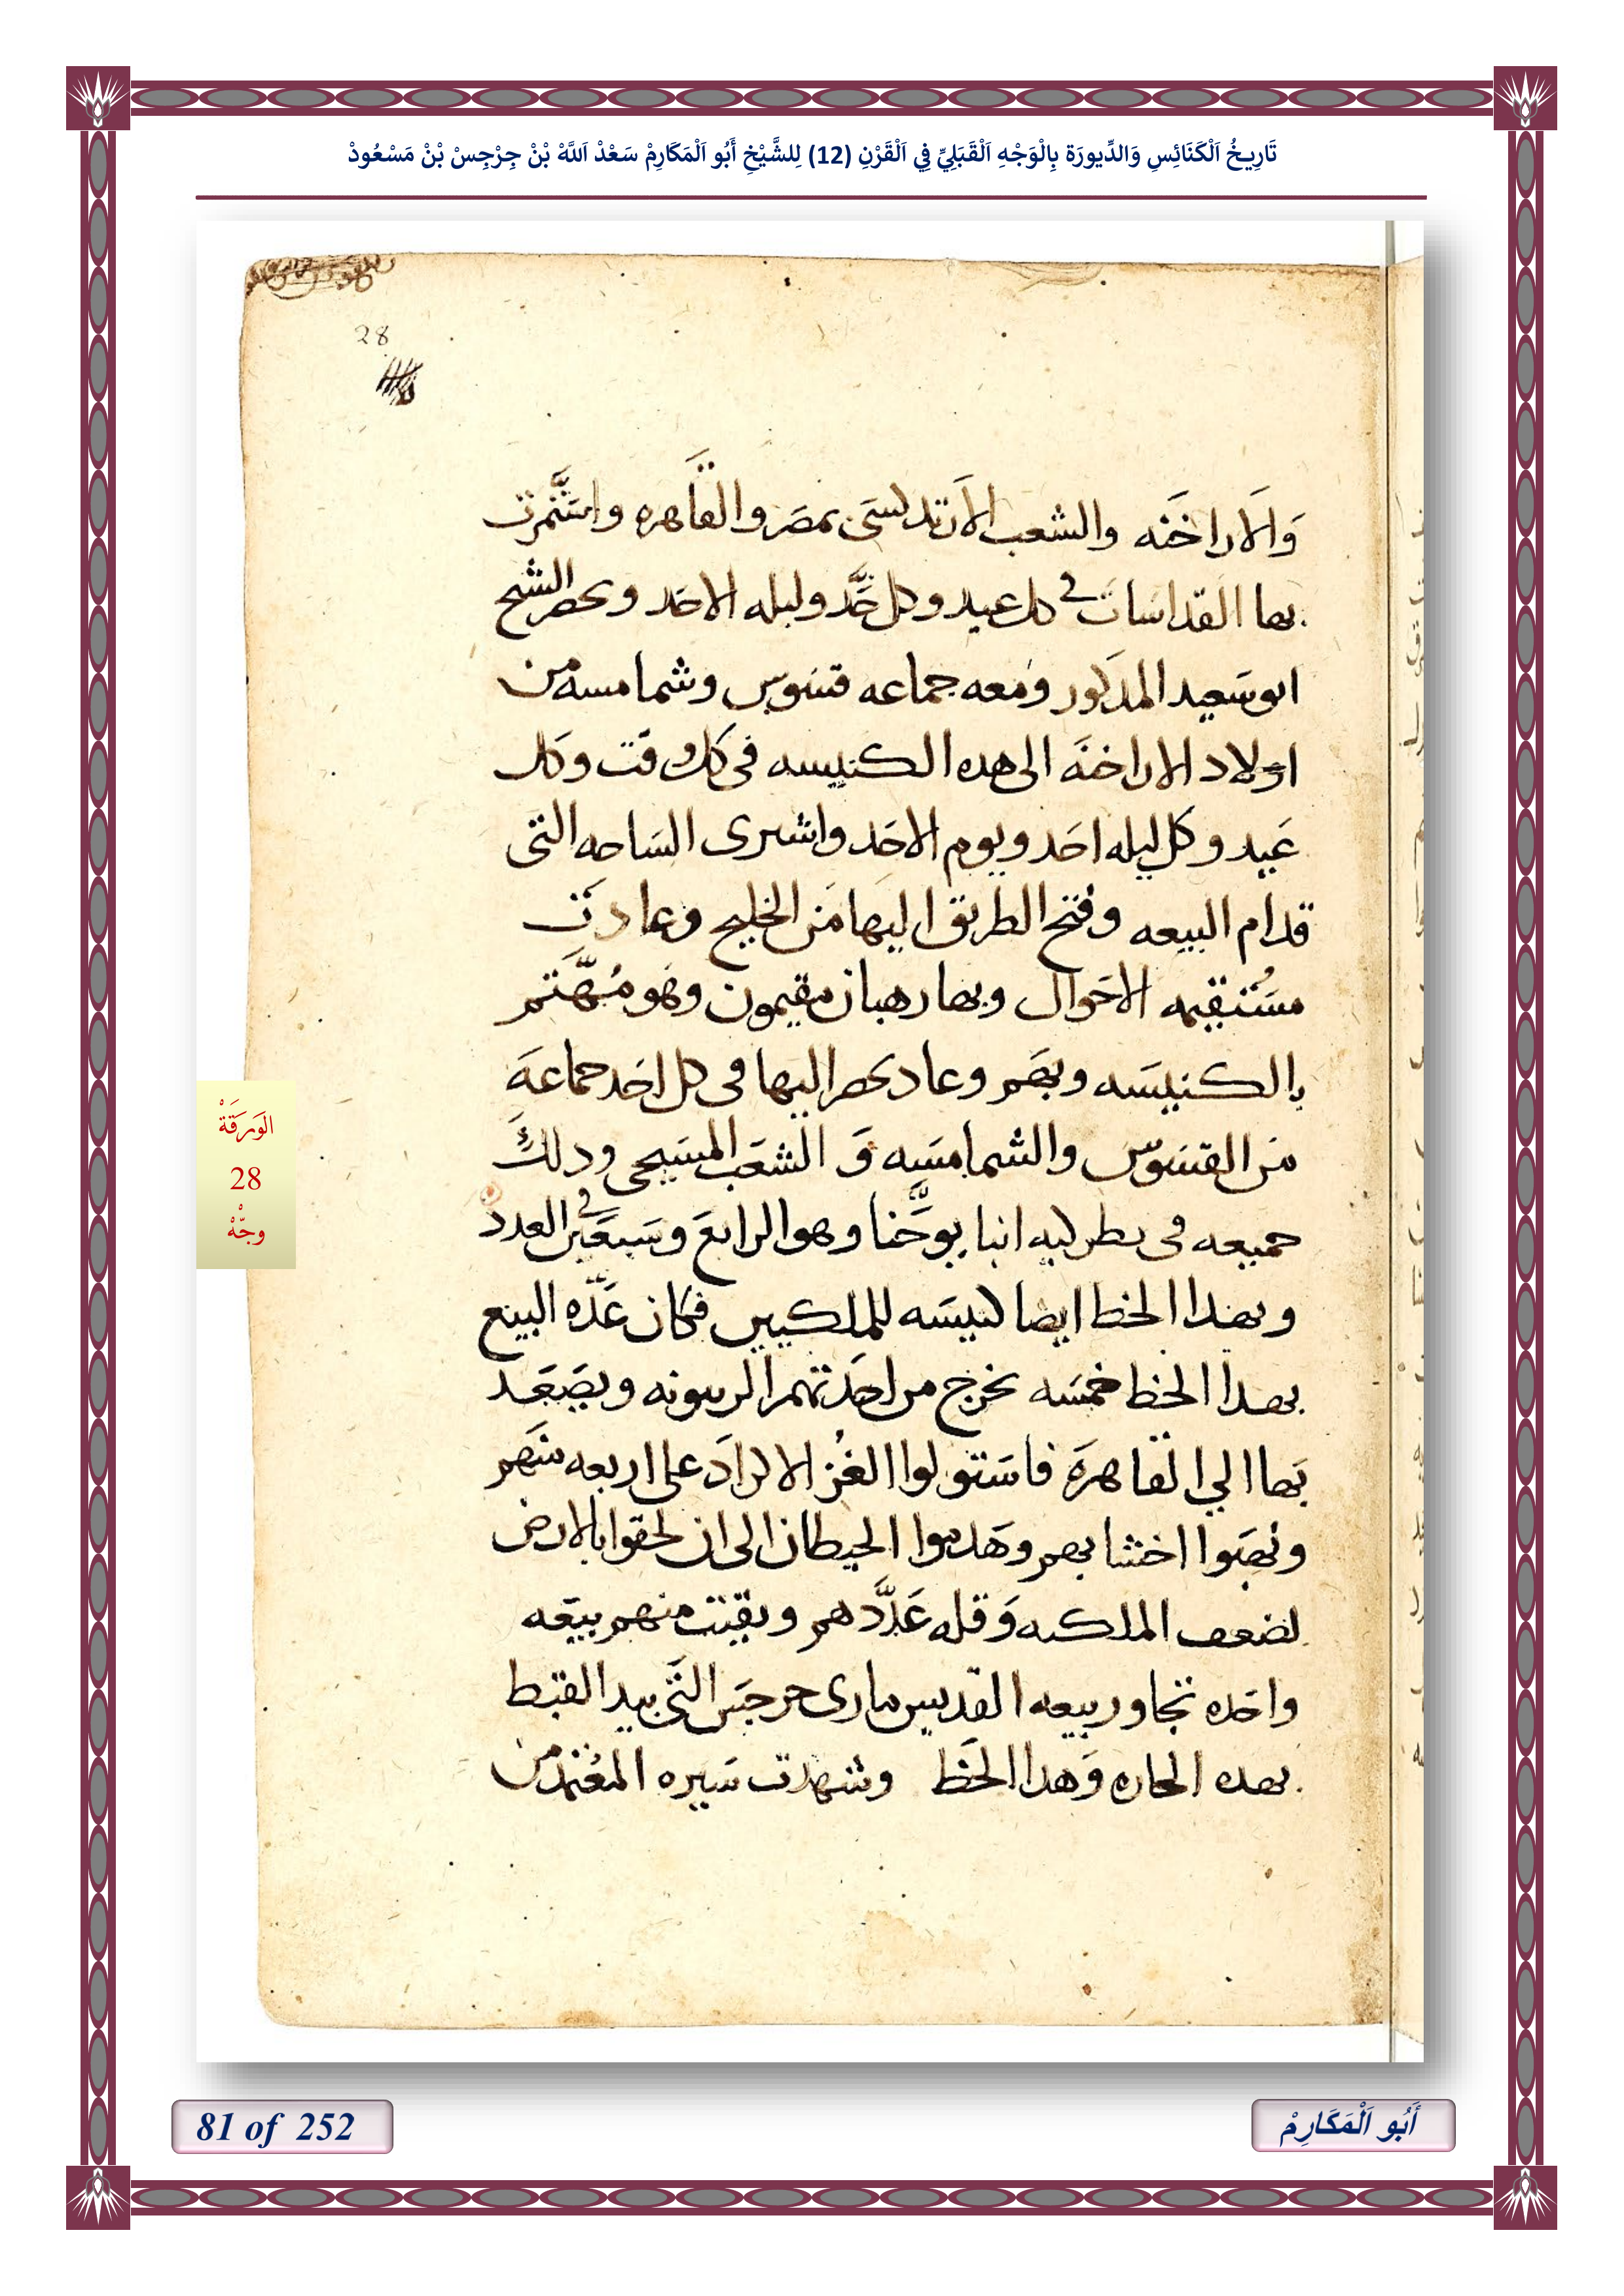 تَارِيخُ اَلْكَنَائِسِ وَالدِّيورَة بِالْوَجْهِ اَلْقَبَلِيِّ فِي اَلْقَرْنِ (12) لِلشَّيْخِ أَبُو اَلْمَكَارِمْ سَعْدْ اَللَّهْ بْنْ جِرْجِسْ بْنْ مَسْعُودْ
28
وَالاراخنَه والشعب الارتدلسى بمصر والقاهره واستَّمرت
بها القداسات في كل عيد وكل حَّد وليله الاحد وىحصر الشيح
ابو سَعيد المدكور ومعه جماعه قسوس وشمامسه من
اولاد الاراخنَه الى هده الكنيسه فى كل وقت وكل
عَيد وكل ليله احَد ويوم الاحَد واشىرى السَاحه التى
قدام البيعه وفتح الطريق اليها مَن الخليج وعادت
مسُتقيمه الاحَوال وبها رهبان مقيمون وهو مُهَّتم
بالكنيسَه وبهَم وعاد ىحصر اليها فى كل احَد جماعَة
مَن القسَوس والشمامسَه وَ الشعَب المسَيحى ودلك
جميعه فى بطركيه انبا يوحَّنا وهو الرابعَ وسَبعَين في العدد
وبهدا الخط ايضا كنيسَه للملكيين فكان عَدَّه البيع
بهدا الخط خمسَه تخرج من احَدتهم الزيىونه ويصَعَد
بَها الي القاهرَة فاستَولوا الغُز الاكرادَ على اربعه منهَم
ونهَبوا اخشابهم وهَدموا الحيطان الى ان لحقوا بالارض
لضعف الملكيه وَقله عَدَّدهم وبقيت منهم بيعَه
واحَده تجاور بيعه القديس مارى جرجَس التَى بيد القبط
بهده الحاره وَهدا الخَط وشهدت سَيره المعُتمد من
الوَرَقَةْ
28
وجْهْ
81 of 252
أَبُو اَلْمَكَارِمْ